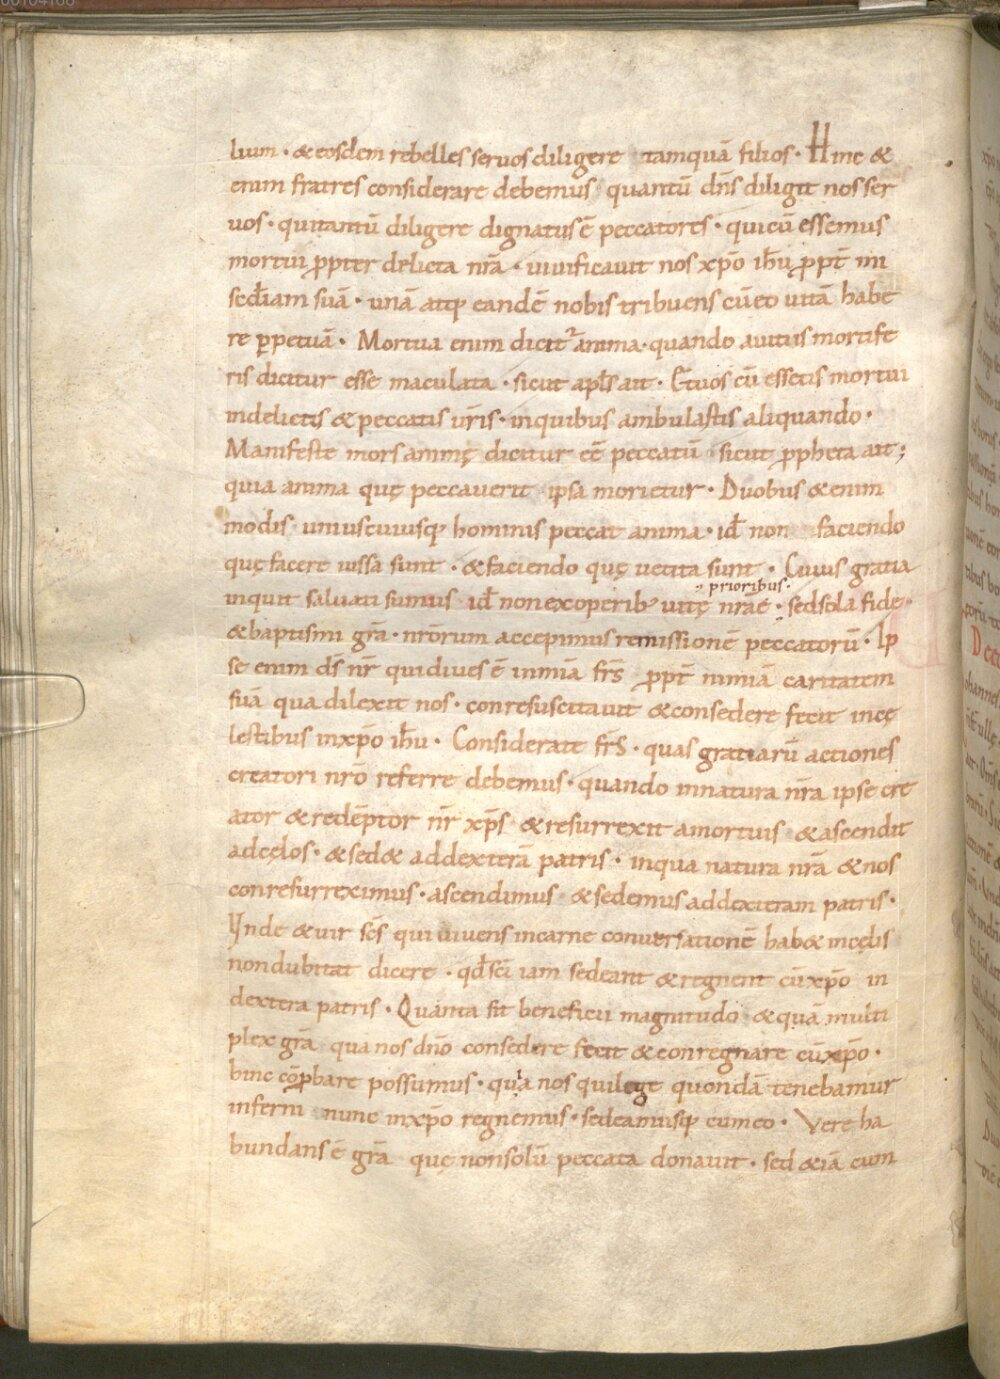 00104166
lium · & eosdem rebelles seruos diligere tamquā filios · Hinc &
enim fratres considerare debemus quantū dn̄s diligit nos ser
uos · qui tantū diligere dignatus ē peccatores · qui cū essemus
mortui ꝓpter delicta nr̄a · uiuificauit nos xp̄o ih̄u ꝓpt̄ mi
sed̄iam suā · unā atq; eandē nobis tribuens cū eo uitā habe
re ꝑpetuā · Mortua enim dicit᷑ anima · quando auitiis mortife
ris dicitur esse maculata · sicut apl̄s ait · Et uos cū essetis mortui
in delictis & peccatis ur̄is · in quibus ambulastis aliquando ·
Manifeste mors animę dicitur eē peccatū sicut ꝓpheta ait ;
quia anima quę peccauerit ipsa morietur · Duobus & enim
modis uniuscuiusq; hominis peccat anima · id̄ non faciendo
quę facere iussa sunt · & faciendo quę uetita sunt · Cuius gratia
prioribus ·
inquit saluati sumus id̄ non ex operib; uitę nr̄ae · sed sola fide ·
& baptismi gr̄a · nr̄orum accepimus remissionē peccatorū · Ip
se enim dś nr̄ qui diues ē in mīa fr̄s ꝓpt̄ nimiā caritatem
suā qua dilexit nos · conresuscitauit & consedere fecit in cę
lestibus in xp̄o ih̄u · Considerate fr̄s · quas gratiarū actiones
creatori nr̄o referre debemus · quando in natura nr̄a ipse cre
ator & redēptor nr̄ xp̄s & resurrexit a mortuis & ascendit
ad cęlos · & sed& ad dexterā patris · in qua natura nr̄a & nos
conresurreximus · ascendimus & sedemus ad dexteram patris ·
Unde & uir sc̄s qui uiuens in carne conuersationē hab& in cęlis
non dubitat dicere · qd̄ sc̄i iam sedeant & regnent cū xp̄o in
dextera patris · Quanta sit beneficii magnitudo & quā multi
plex gr̄a qua nos dn̄o consedere fecit & conregnare cū xp̄o ·
hinc cōꝓbare possumus · quia nos qui lege quondā tenebamur
inferni nunc in xp̄o regnemus · sedeamusq; cum eo · Vere ha
bundans ē gr̄a quę non solū peccata donauit · sed &iā cum